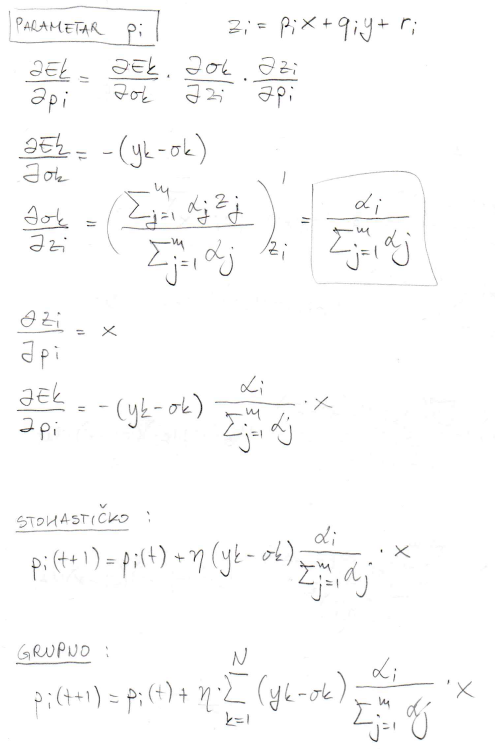 PARAMETAR pi    zi = pix + qiy + ri
∂Ek/∂pi = ∂Ek/∂ok · ∂ok/∂zi · ∂zi/∂pi
∂Ek/∂ok = -(yk-ok)
∂ok/∂zi = (∑_{j=1}^{m} αj zj / ∑_{j=1}^{m} αj)'_{zi} = αi / ∑_{j=1}^{m} αj
∂zi/∂pi = x
∂Ek/∂pi = -(yk-ok) αi / ∑_{j=1}^{m} αj · x
STOHASTIČKO :
pi(t+1) = pi(t) + η (yk-ok) αi / ∑_{j=1}^{m} αj · x
GRUPNO :
pi(t+1) = pi(t) + η · ∑_{k=1}^{N} (yk-ok) αi / ∑_{j=1}^{m} αj · x